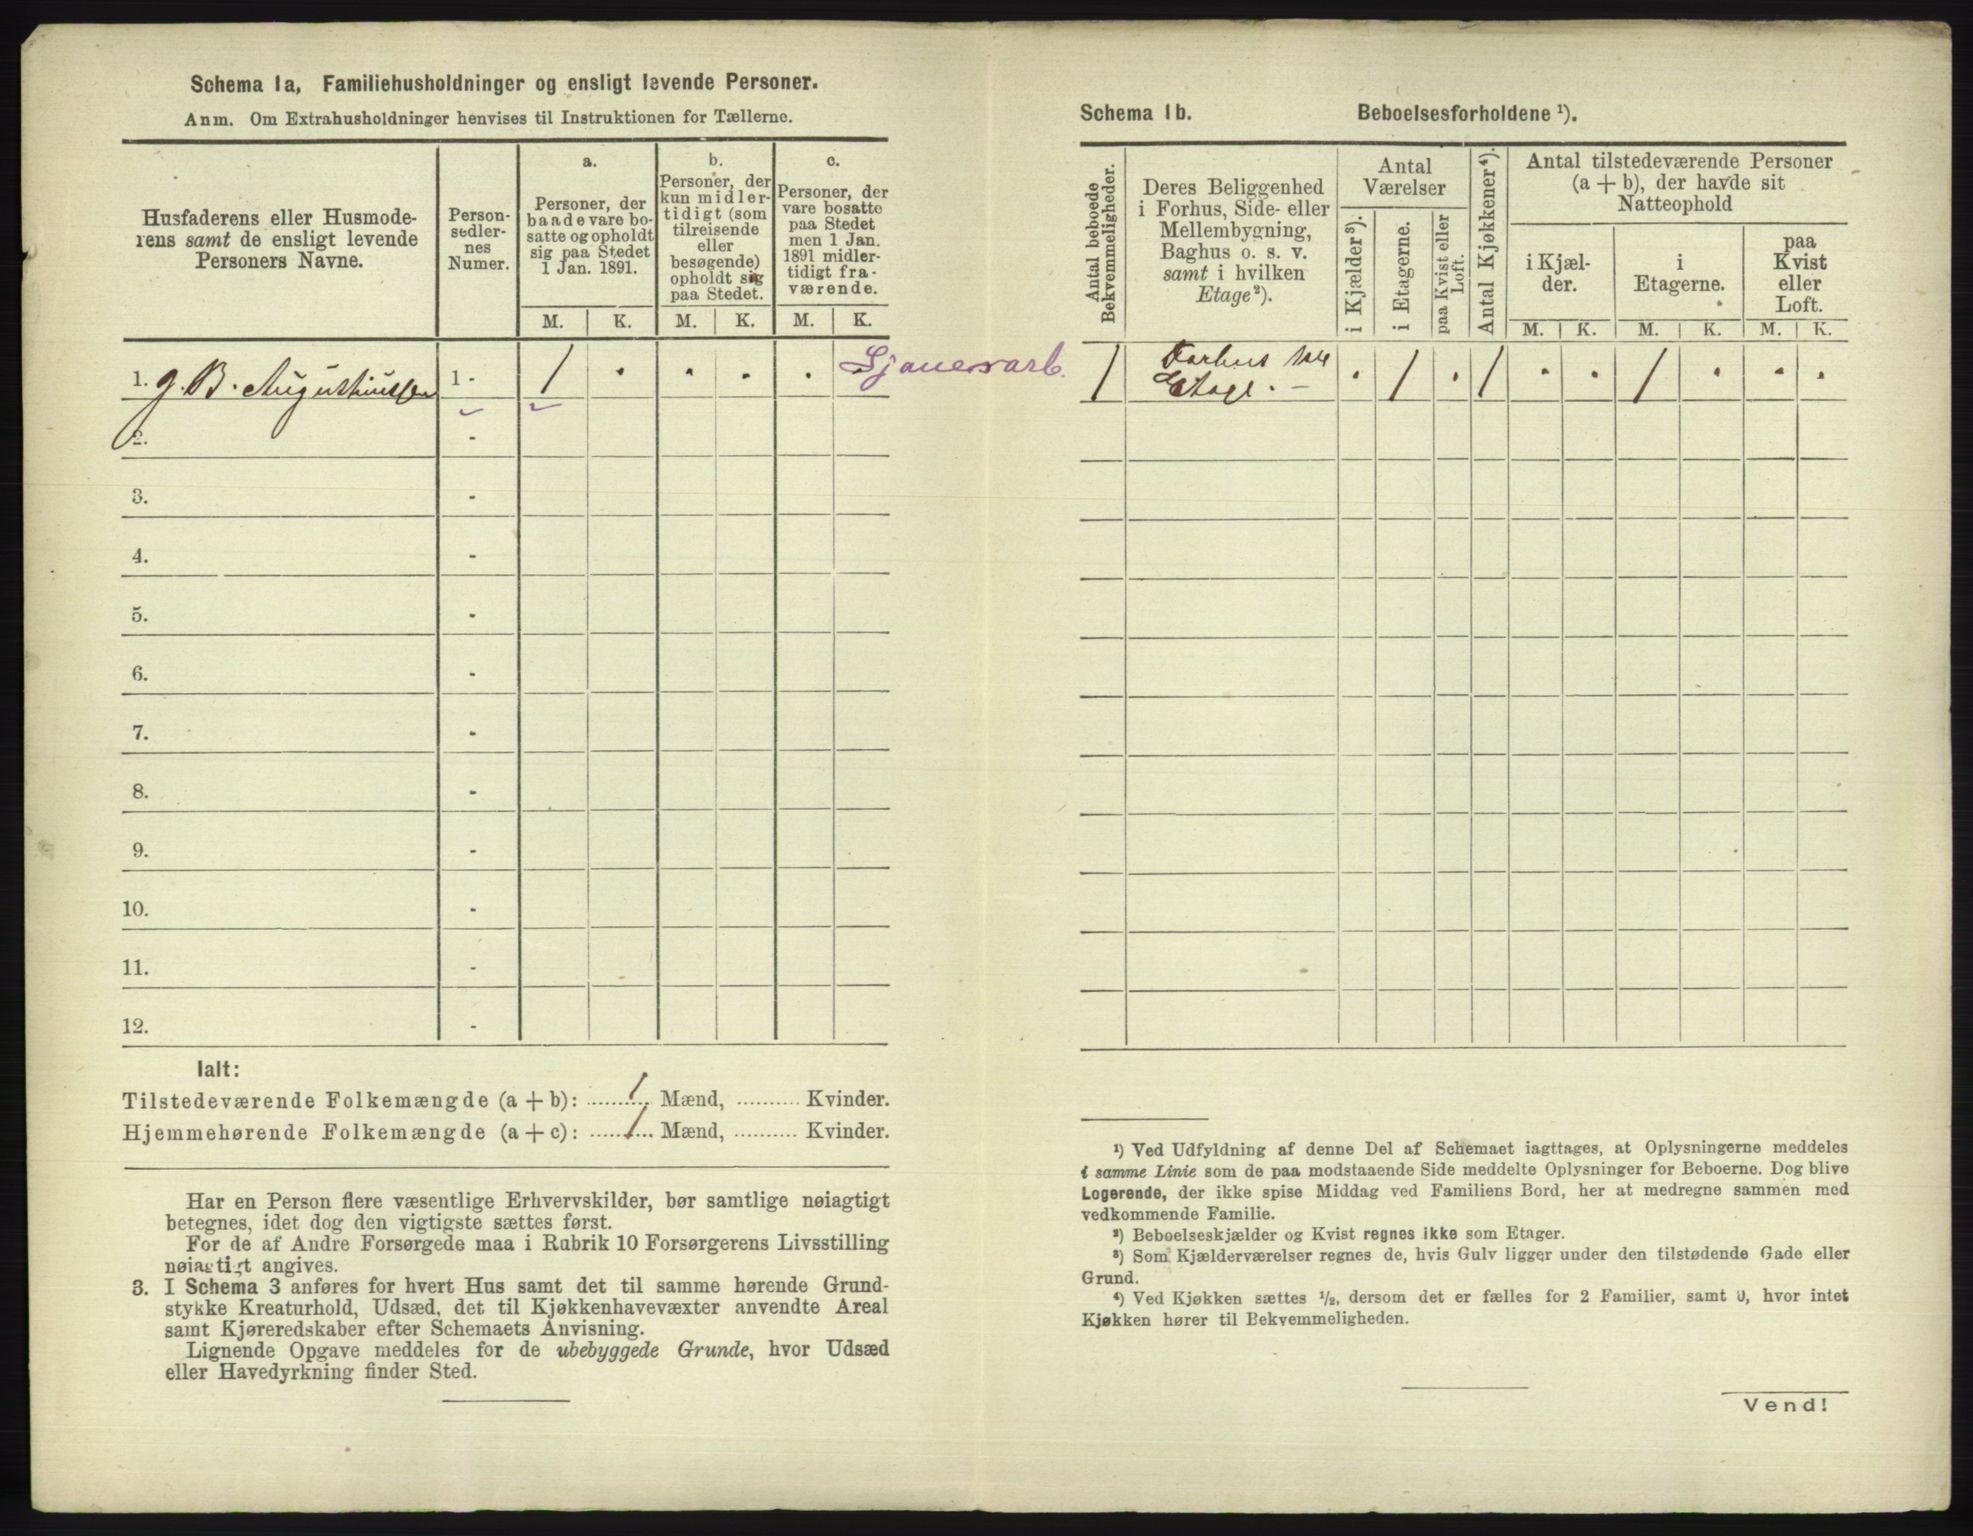 Schema 1a, Familiehusholdninger og ensligt levende Personer.
Anm. Om Extrahusholdninger henvises til Instruktionen for Tællerne.
Husfaderens eller Husmode-
rens samt de ensligt levende
Personers Navne.
Person-
sedler-
nes
Numer.
a.
Personer, der
baade vare bo-
satte og opholdt
sig paa Stedet
1 Jan. 1891.
b.
Personer, der
kun midler-
tidigt (som
tilreisende
eller
besøgende)
opholdt sig
paa Stedet.
c.
Personer, der
vare bosatte
paa Stedet
men 1 Jan.
1891 midler-
tidigt fra-
værende.
M. K. M. K. M. K.
1. G. B. Augustinussen 1 - 1 . . . .
2. -
3. -
4. -
5. -
6. -
7. -
8. -
9. -
10. -
11. -
12. -
Ialt:
Tilstedeværende Folkemængde (a + b): 1 Mænd, .......... Kvinder.
Hjemmehørende Folkemængde (a + c): 1 Mænd, .......... Kvinder.
Har en Person flere væsentlige Erhvervskilder, bør samtlige nøiagtigt
betegnes, idet dog den vigtigste sættes først.
For de af Andre Forsørgede maa i Rubrik 10 Forsørgerens Livsstilling
nøiagtigt angives.
3. I Schema 3 anføres for hvert Hus samt det til samme hørende Grund-
stykke Kreaturhold, Udsæd, det til Kjøkkenhavevæxter anvendte Areal
samt Kjøreredskaber efter Schemaets Anvisning.
Lignende Opgave meddeles for de ubebyggede Grunde, hvor Udsæd
eller Havedyrkning finder Sted.
Schema 1b. Beboelsesforholdene ¹).
Antal beboede
Bekvemmeligheder.
Deres Beliggenhed
i Forhus, Side- eller
Mellembygning,
Baghus o. s. v.
samt i hvilken
Etage²).
Antal
Værelser
i Kjælder³).
i Etagerne.
paa Kvist eller
Loft.
Antal Kjøkkener⁴).
Antal tilstedeværende Personer
(a + b), der havde sit
Natteophold
i Kjæl-
der.
i
Etagerne.
paa
Kvist
eller
Loft.
M. K. M. K. M. K.
1 Forhus
Etage. - . 1 . 1 . . 1 . . .
¹) Ved Udfyldning af denne Del af Schemaet iagttages, at Oplysningerne meddeles
i samme Linie som de paa modstaaende Side meddelte Oplysninger for Beboerne. Dog blive
Logerende, der ikke spise Middag ved Familiens Bord, her at medregne sammen med
vedkommende Familie.
²) Beboelseskjælder og Kvist regnes ikke som Etager.
³) Som Kjælderværelser regnes de, hvis Gulv ligger under den tilstødende Gade eller
Grund.
⁴) Ved Kjøkken sættes ½, dersom det er fælles for 2 Familier, samt 0, hvor intet
Kjøkken hører til Bekvemmeligheden.
Vend!